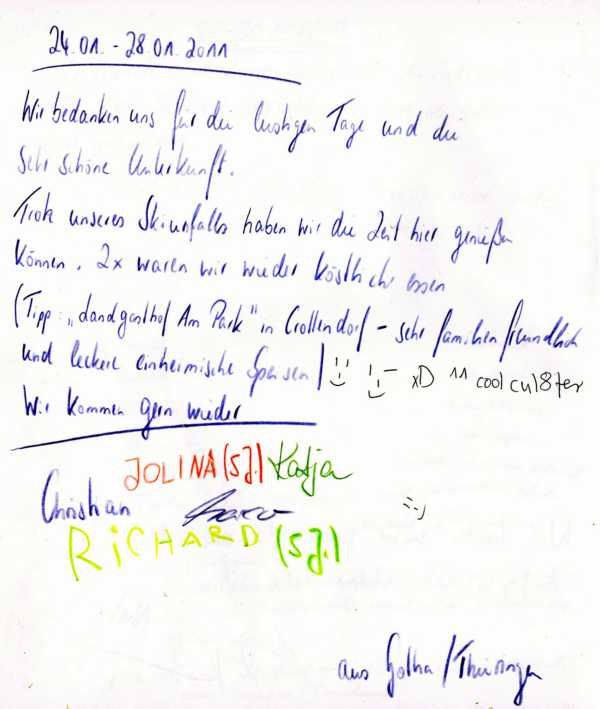 24.01. - 28.01.2011
Wir bedanken uns für die lustigen Tage und die
sehr schöne Unterkunft.
Trotz unseres Skiunfalls haben wir die Zeit hier genießen
können. 2x waren wir wieder köstlich essen
(Tipp: „Landgasthof Am Park" in Crottendorf - sehr familienfreundlich
und leckere einheimische Speisen) xD 11 cool cul8ter
Wir kommen gern wieder
JOLINA (5J.) Katja
Christian
RiCHARD (5J.)
aus Gotha/Thüringen